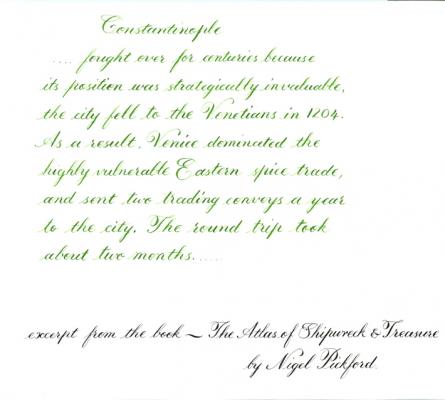 Constantinople
.... fought over for centuries because
its position was strategically invaluable,
the city fell to the Venetians in 1204.
As a result, Venice dominated the
highly vulnerable Eastern spice trade,
and sent two trading conveys a year
to the city. The round trip took
about two months......
excerpt from the book ~ The Atlas of Shipwreck & Treasure
by Nigel Pickford